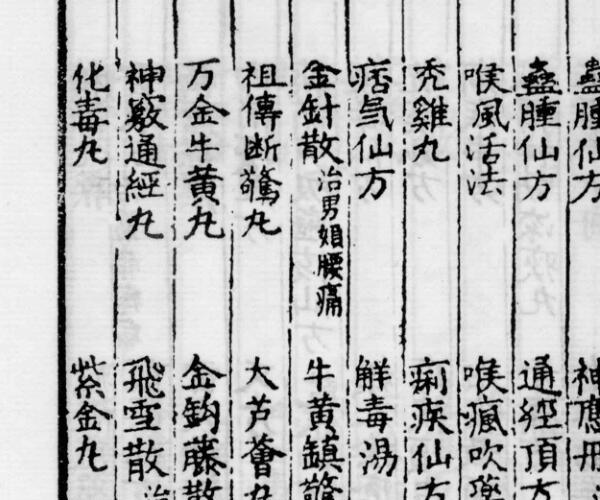 蠱腫仙方 神應丹
蠱腫仙方 通經頂
喉風活法 喉瘋吹
禿雞丸 痢疾仙方
痞氣仙方 解毒湯
金針散 治男婦腰痛 牛黃鎮驚
祖傳断驚丸 大芦薈丸
万金牛黄丸 金鈎藤散
神竅通經丸 飛雪散 治
化毒丸 紫金丸